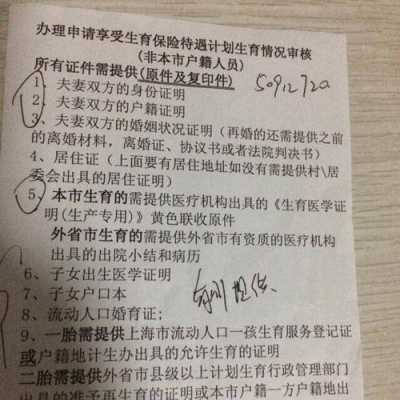 办理申请享受生育保险待遇计划生育情况审核
(非本市户籍人员)
所有证件需提供(原件及复印件)
50912720
1、夫妻双方的身份证明
2、夫妻双方的户籍证明
3、夫妻双方的婚姻状况证明（再婚的还需提供之前
的离婚材料，离婚证、协议书或者法院判决书）
4、居住证（上面要有居住地址如没有需提供村\居
委会出具的居住证明）
5、本市生育的需提供医疗机构出具的《生育医学证
明(生产专用)》黄色联收原件
外省市生育的需提供外省市有资质的医疗机构
出具的出院小结和病历
6、子女出生医学证明
7、子女户口本
8、流动人口婚育证;
9、一胎需提供上海市流动人口一孩生育服务登记证
或户籍地计生办出具的允许生育的证明
二胎需提供外省市县级以上计划生育行政管理部门
出具的准予再生育的证明或本市户籍一方户籍地出